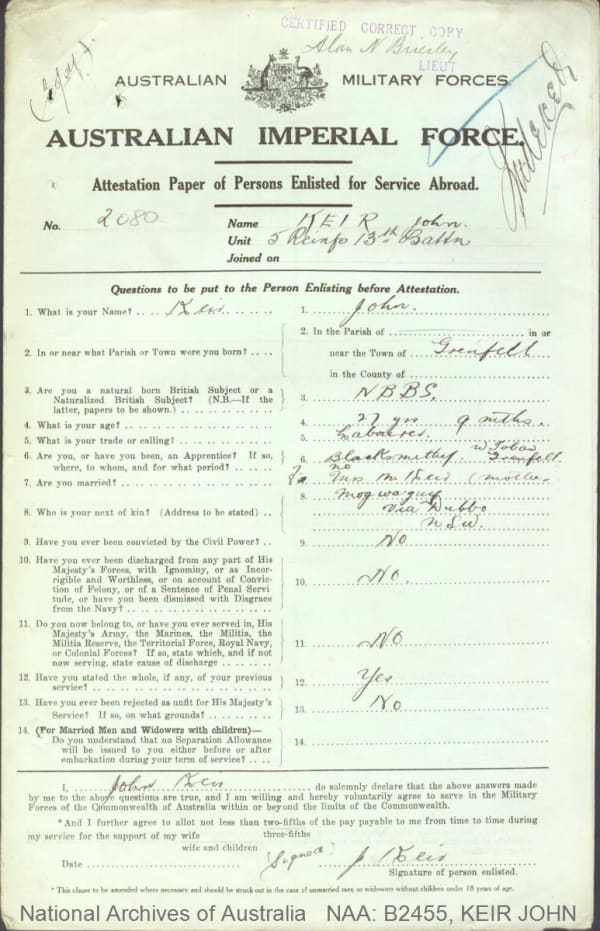 CERTIFIED CORRECT COPY
Alan N Brierley
LIEUT
(Copy).
AUSTRALIAN MILITARY FORCES.
AUSTRALIAN IMPERIAL FORCE.
Attestation Paper of Persons Enlisted for Service Abroad.
No. 2080
Name KEIR John.
Unit 5 Reinfs 13th Battn
Joined on
Questions to be put to the Person Enlisting before Attestation.
1. What is your Name? .. .. Keir
1. John.
2. In or near what Parish or Town were you born? .. ..
2. In the Parish of .......... in or
near the Town of Grenfell
in the County of
3. Are you a natural born British Subject or a
Naturalized British Subject? (N.B.—If the
latter, papers to be shown.)
3. NBBS.
4. What is your age?
4. 27 yrs 9 mths.
5. What is your trade or calling?
5. Labourer.
6. Are you, or have you been, an Apprentice? If so,
where, to whom, and for what period? .. ..
6. Blacksmith Grenfell
7. Are you married?
7. no
8. Who is your next of kin? (Address to be stated) ..
8. Mrs M Keir (mother
via Dubbo
NSW.
9. Have you ever been convicted by the Civil Power? ..
9. No
10. Have you ever been discharged from any part of His
Majesty's Forces, with Ignominy, or as Incor-
rigible and Worthless, or on account of Convic-
tion of Felony, or of a Sentence of Penal Servi-
tude, or have you been dismissed with Disgrace
from the Navy?
10. No.
11. Do you now belong to, or have you ever served in, His
Majesty's Army, the Marines, the Militia, the
Militia Reserve, the Territorial Force, Royal Navy,
or Colonial Forces? If so, state which, and if not
now serving, state cause of discharge
11. No
12. Have you stated the whole, if any, of your previous
service?
12. Yes
13. Have you ever been rejected as unfit for His Majesty's
Service? If so, on what grounds?
13. No
14. (For Married Men and Widowers with children)—
Do you understand that no Separation Allowance
will be issued to you either before or after
embarkation during your term of service? .. ..
14.
I, John Keir do solemnly declare that the above answers made
by me to the above questions are true, and I am willing and hereby voluntarily agree to serve in the Military
Forces of the Commonwealth of Australia within or beyond the limits of the Commonwealth.
*And I further agree to allot not less than two-fifths of the pay payable to me from time to time during
three-fifths
my service for the support of my wife
wife and children
Date
(Signed) J Keir
Signature of person enlisted.
* This clause to be amended where necessary and should be struck out in the case of unmarried men or widowers without children under 18 years of age.
National Archives of Australia NAA: B2455, KEIR JOHN